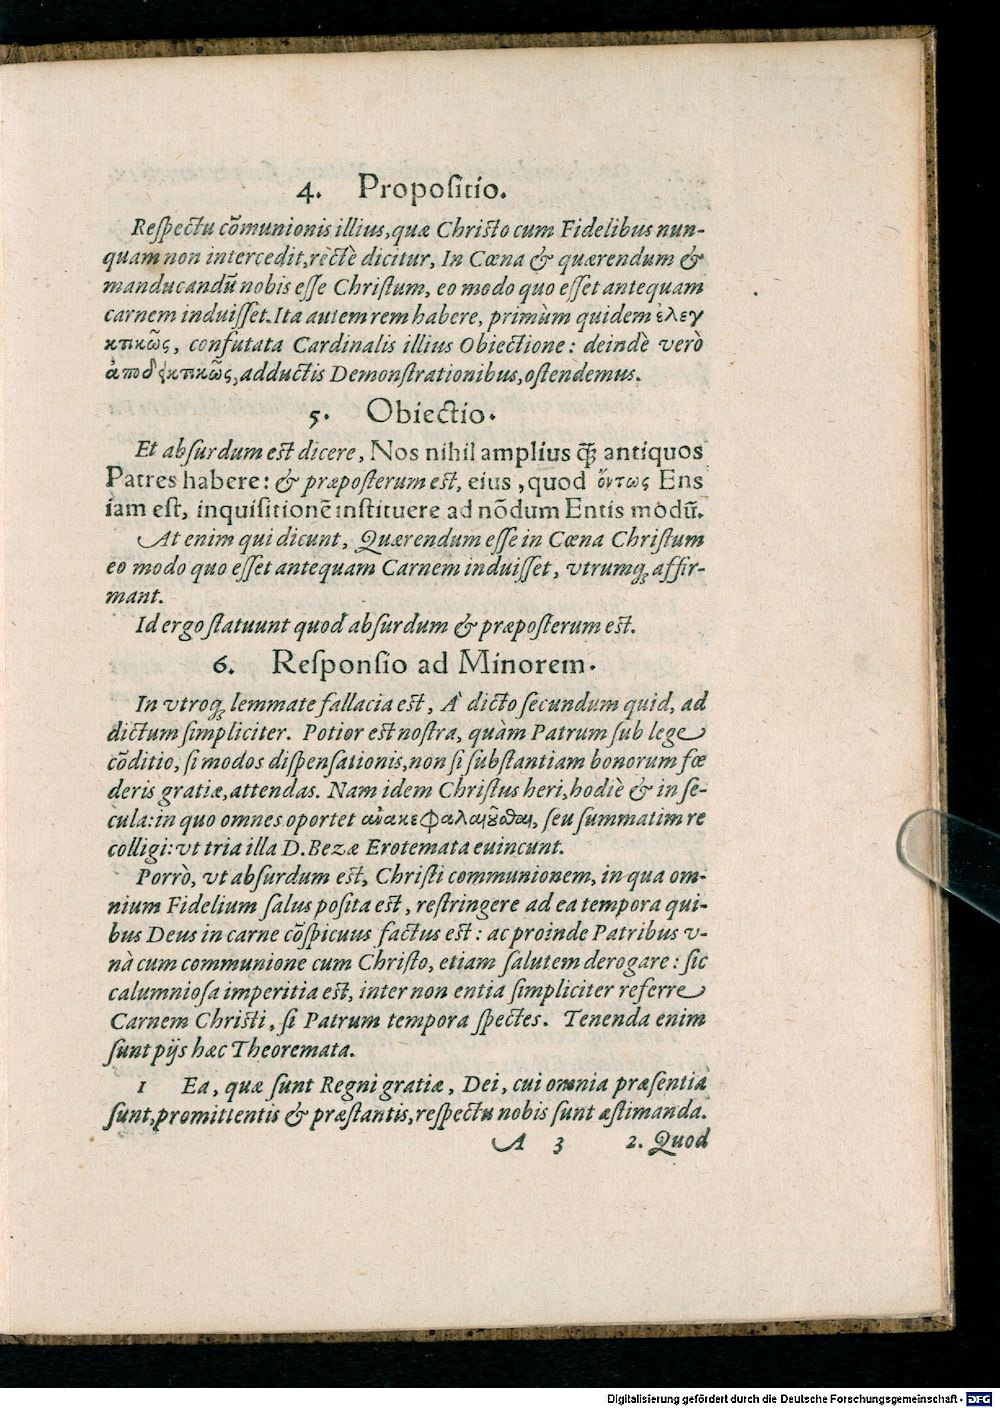 4. Propositio.
Reſpectu cõmunionis illius, quæ Christo cum Fidelibus nun-
quam non intercedit, rectè dicitur, In Cœna & quærendum &
manducandũ nobis eſſe Chriſtum, eo modo quo eſſet antequam
carnem induiſſet. Ita autem rem habere, primùm quidem ἐλεγ
κτικῶς, confutata Cardinalis illius Obiectione: deindè verò
ἀποδεικτικῶς, adductis Demonſtrationibus, oſtendemus.
5. Obiectio.
Et abſurdum eſt dicere, Nos nihil amplius q̃ꝫ antiquos
Patres habere: & præpoſterum eſt, eius, quod ὄντως Ens
iam eſt, inquiſitionẽ inſtituere ad nõdum Entis modũ.
At enim qui dicunt, Quærendum eſſe in Cœna Chriſtum
eo modo quo eſſet antequam Carnem induiſſet, vtrumqꝫ affir-
mant.
Id ergo ſtatuunt quod abſurdum & præpoſterum eſt.
6. Reſponſio ad Minorem.
In vtroqꝫ lemmate fallacia eſt, À dicto ſecundum quid, ad
dictum ſimpliciter. Potior eſt noſtra, quàm Patrum ſub lege
cõditio, ſi modos diſpenſationis, non ſi ſubſtantiam bonorum fœ
deris gratiæ, attendas. Nam idem Chriſtus heri, hodiè & in ſe-
cula: in quo omnes oportet ἀνακεφαλαιοῦσθαι, ſeu ſummatim re
colligi: vt tria illa D. Bezæ Erotemata euincunt.
Porrò, vt abſurdum eſt, Chriſti communionem, in qua om-
nium Fidelium ſalus poſita eſt, reſtringere ad ea tempora qui-
bus Deus in carne cõſpicuus factus eſt: ac proinde Patribus v-
nà cum communione cum Chriſto, etiam ſalutem derogare: ſic
calumnioſa imperitia eſt, inter non entia ſimpliciter referre
Carnem Chriſti, ſi Patrum tempora ſpectes. Tenenda enim
ſunt pijs hæc Theoremata.
1 Ea, quæ ſunt Regni gratiæ, Dei, cui omnia præſentia
ſunt, promittentis & præſtantis, reſpectu nobis ſunt æſtimanda.
A 3 2. Quod
Digitalisierung gefördert durch die Deutsche Forschungsgemeinschaft - DFG